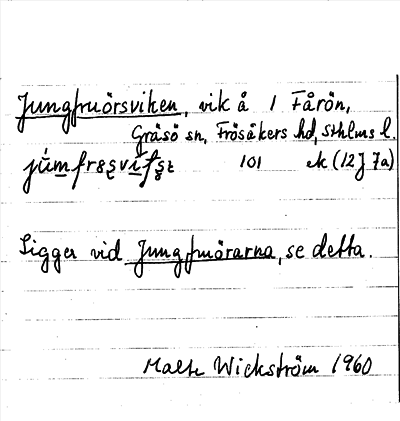 Jungfruörsviken, vik å 1 Fårön,
Gräsö sn, Frösåkers hd, Sthlms l.
101 ek (12J 7a)
Ligger vid Jungfruörarna, se detta.
Malte Wickström 1960